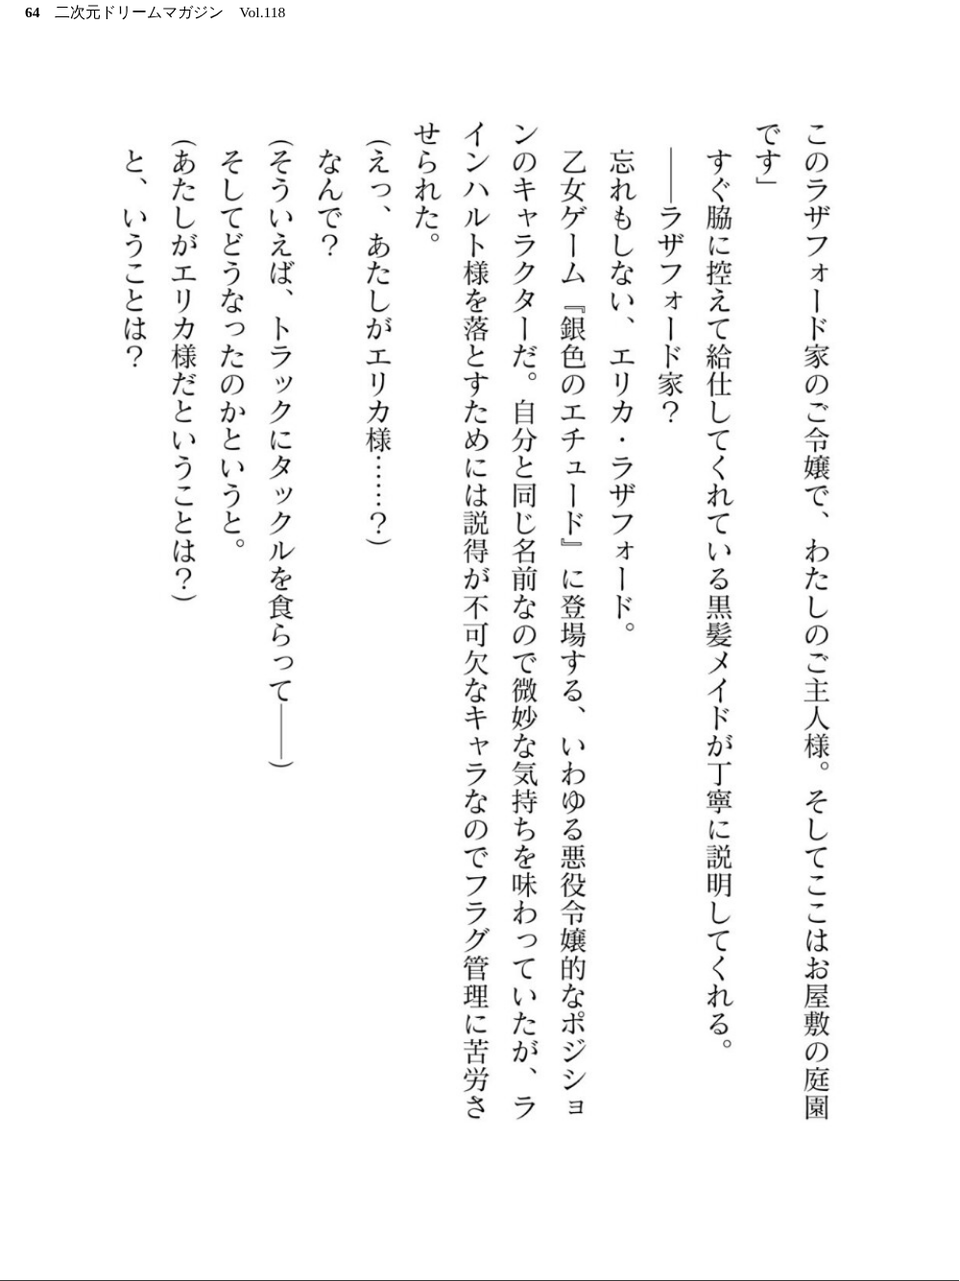 64 二次元ドリームマガジン Vol.118
このラザフォード家のご令嬢で、わたしのご主人様。そしてここはお屋敷の庭園
です」
すぐ脇に控えて給仕してくれている黒髪メイドが丁寧に説明してくれる。
――ラザフォード家？
忘れもしない、エリカ・ラザフォード。
乙女ゲーム『銀色のエチュード』に登場する、いわゆる悪役令嬢的なポジショ
ンのキャラクターだ。自分と同じ名前なので微妙な気持ちを味わっていたが、ラ
インハルト様を落とすためには説得が不可欠なキャラなのでフラグ管理に苦労さ
せられた。
（えっ、あたしがエリカ様……？）
なんで？
（そういえば、トラックにタックルを食らって――）
そしてどうなったのかというと。
（あたしがエリカ様だということは？）
と、いうことは？